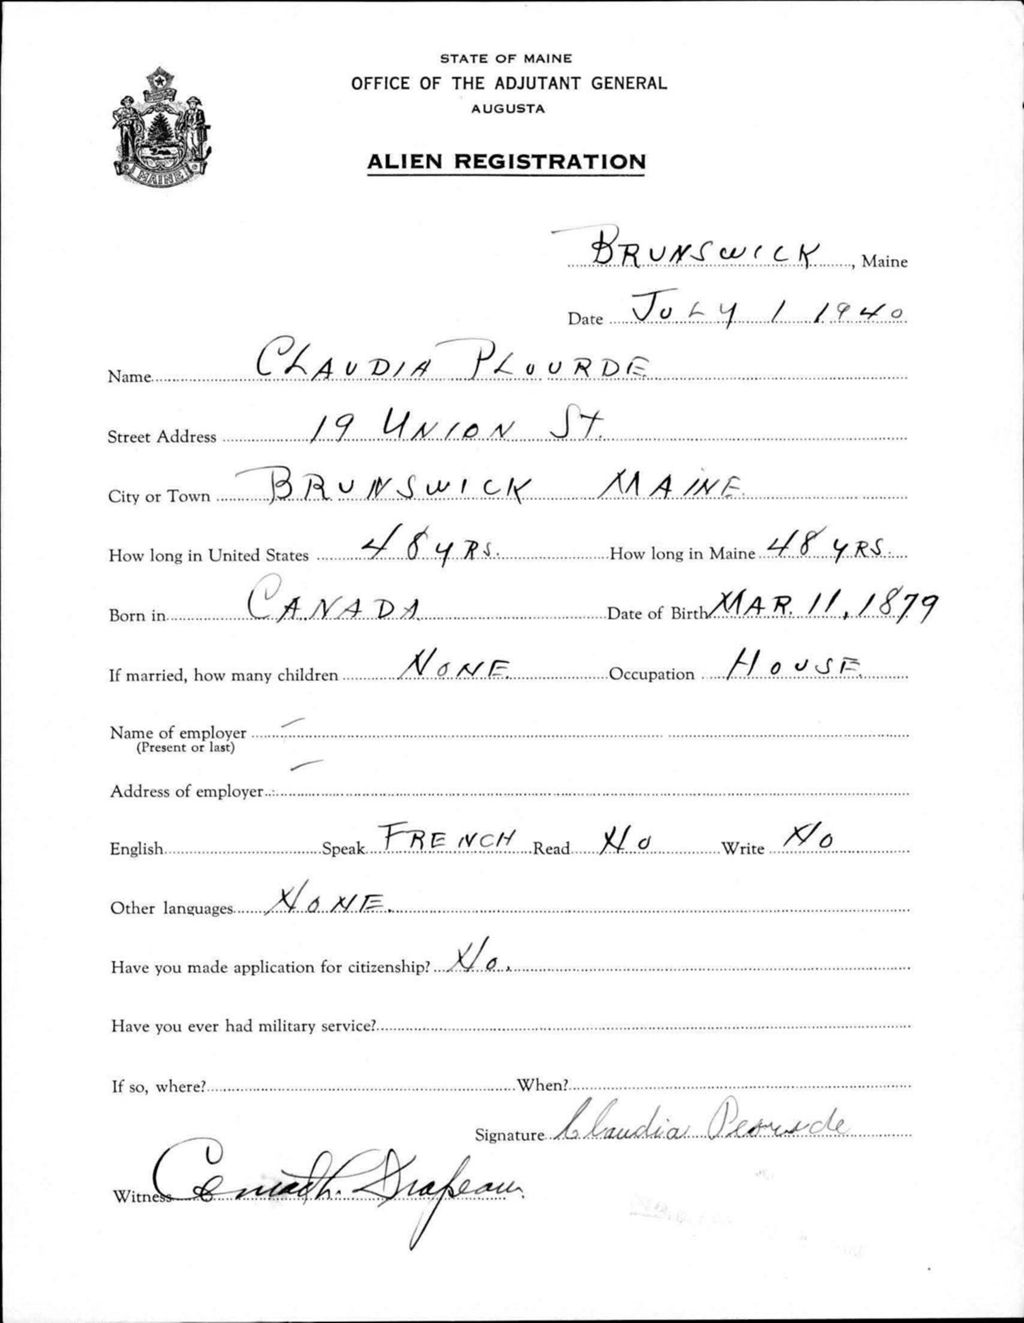 STATE OF MAINE
OFFICE OF THE ADJUTANT GENERAL
AUGUSTA
ALIEN REGISTRATION
MAINE
BRUNSWICK, Maine
Date JULY 1 1940
Name CLAUDIA PLOURDE
Street Address 19 UNION ST.
City or Town BRUNSWICK MAINE
How long in United States 48 YRS. How long in Maine 48 YRS.
Born in CANADA Date of Birth MAR. 11, 1879
If married, how many children NONE Occupation HOUSE
Name of employer —
(Present or last)
Address of employer —
English Speak FRENCH Read NO Write NO
Other languages NONE.
Have you made application for citizenship? NO.
Have you ever had military service?
If so, where? When?
Signature Claudia Plourde
Witness Drapeau